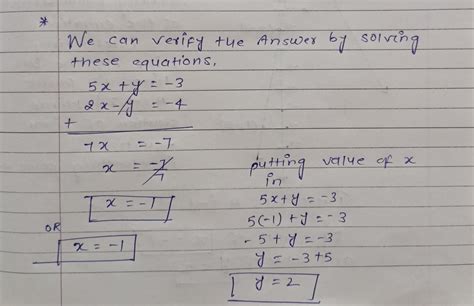 *
We can verify the Answer by solving
these equations.
5x + y = -3
2x - y = -4
+
7x = -7
x = -7/7
x = -1
OR
x = -1
putting value of x
in
5x + y = -3
5(-1) + y = -3
-5 + y = -3
y = -3 + 5
y = 2